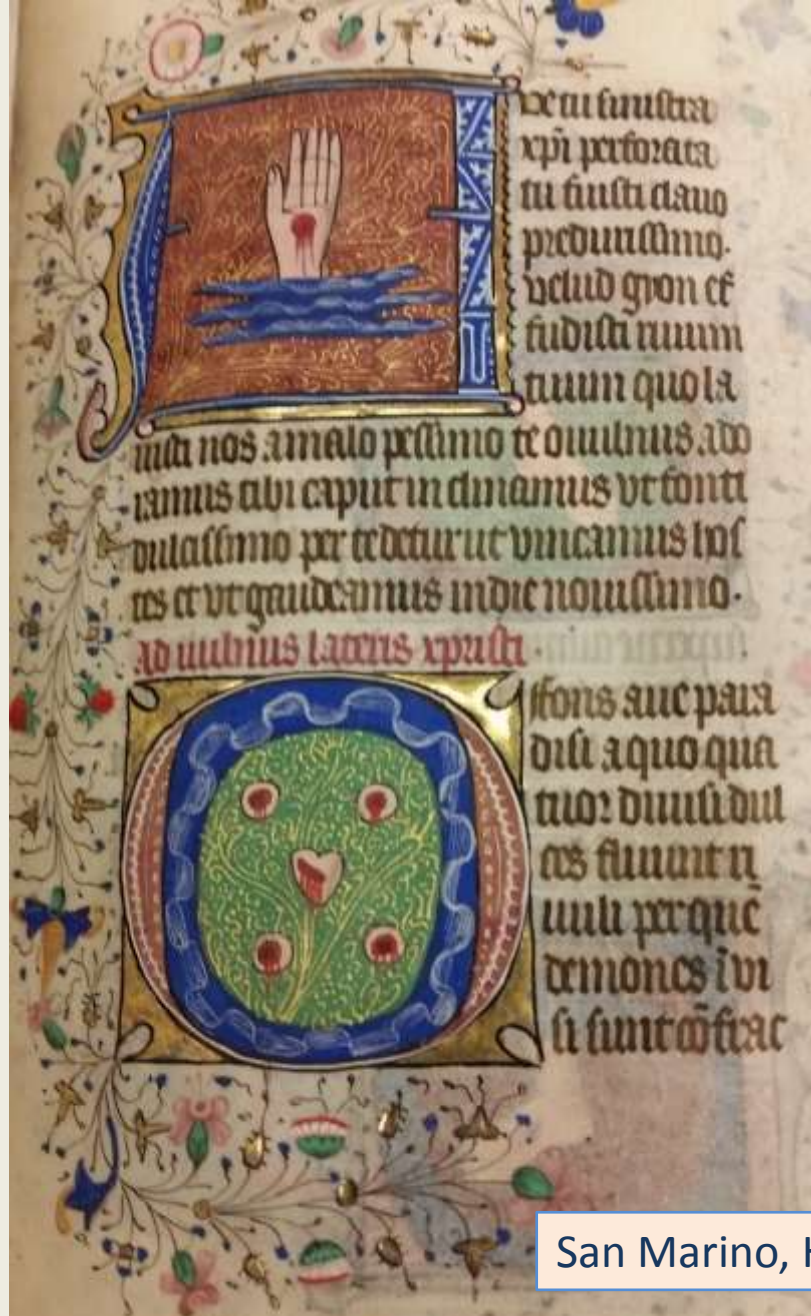 Aue tu sinistra
xpi perforata
tu fuisti clauo
predurissimo.
velud gyon ef
fudisti riuum
tuum quo la
uisti nos a malo pessimo te o uulnus ado
ramus tibi caput in clinamus vt fonti
dulcissimo per te detur ut vincamus hos
tes et vt gaudeamus in die nouissimo.
Ad uulnus lateris xpristi.
O fons aue para
disi a quo qua
tuor diuisi dul
ces fluunt ri
uuli per quē
demones ī vi
si sunt cōfrac
San Marino, H